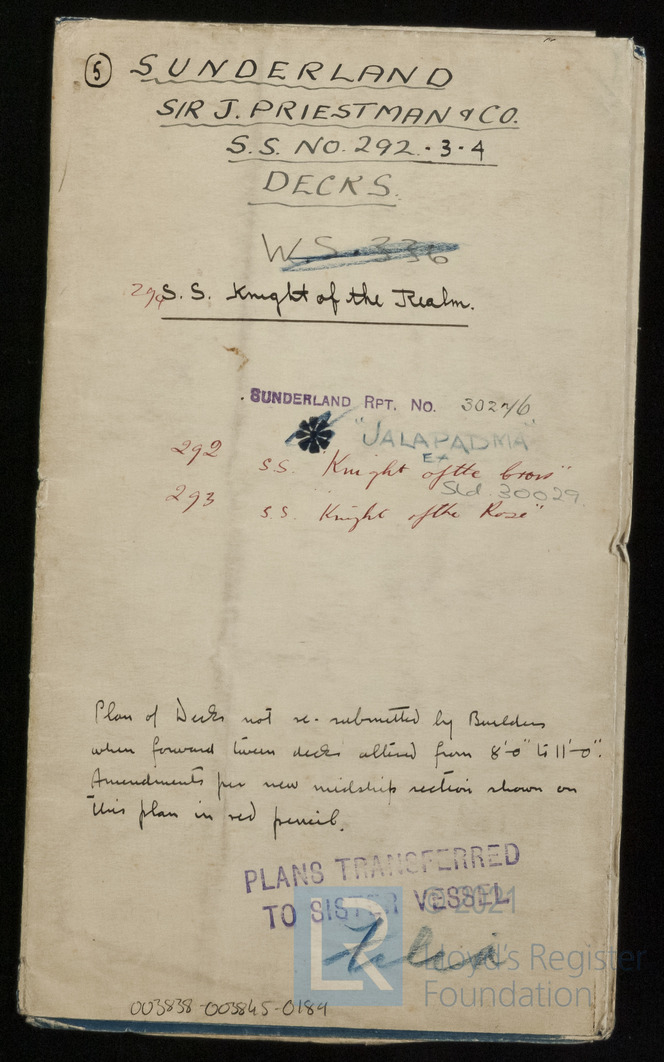 5 SUNDERLAND
SIR J. PRIESTMAN & CO.
S.S. NO. 292 - 3 - 4
DECKS.
W.S. 336
294 S. S. Knight of the Realm.
SUNDERLAND RPT. NO. 30276
"JALAPADMA"
EX
292 S.S. Knight of the Cross"
Sld. 30029
293 S.S. Knight of the Rose"
Plan of Decks not re-submitted by Builders
when forward tween decks altered from 8'-0" to 11'-0".
Amendments per new midship section shown on
this plan in red pencil.
PLANS TRANSFERRED
TO SISTER VESSEL
© 2021
LR
Lloyd's Register
Foundation
003838-003845-0184